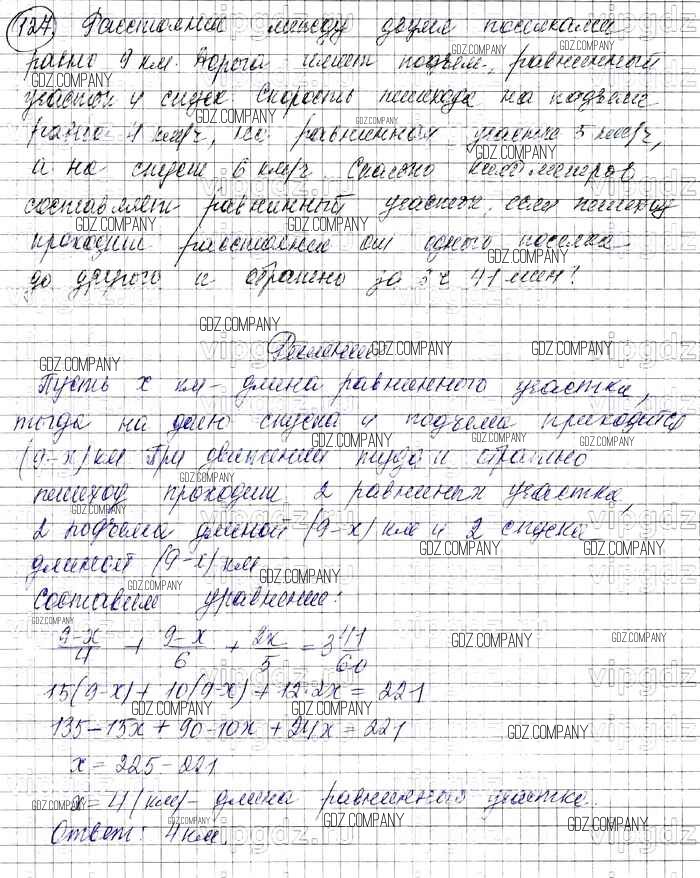 127. Расстояние между двумя поселками
равно 9 км. Дорога имеет подъем, равнинный
участок и спуск. Скорость пешехода на подъеме
равна 4 км/ч, на равнинном участке 5 км/ч,
а на спуске 6 км/ч. Сколько километров
составляет равнинный участок, если пешеход
проходит расстояние от одного поселка
до другого и обратно за 3 ч 41 мин?
Решение
Пусть x км - длина равнинного участка,
тогда на долю спуска и подъема приходится
(9-x) км При движении туда и обратно
пешеход проходит 2 равнинных участка,
2 подъема длиной (9-x) км и 2 спуска
длиной (9-x) км
составим уравнение:
9-x/4 + 9-x/6 + 2x/5 = 3 41/60
15(9-x) + 10(9-x) + 12·2x = 221
135-15x + 90-10x + 24x = 221
x = 225-221
x = 4 (км) - длина равнинного участка.
Ответ: 4 км.
GDZ.COMPANY
vipgdz.ru